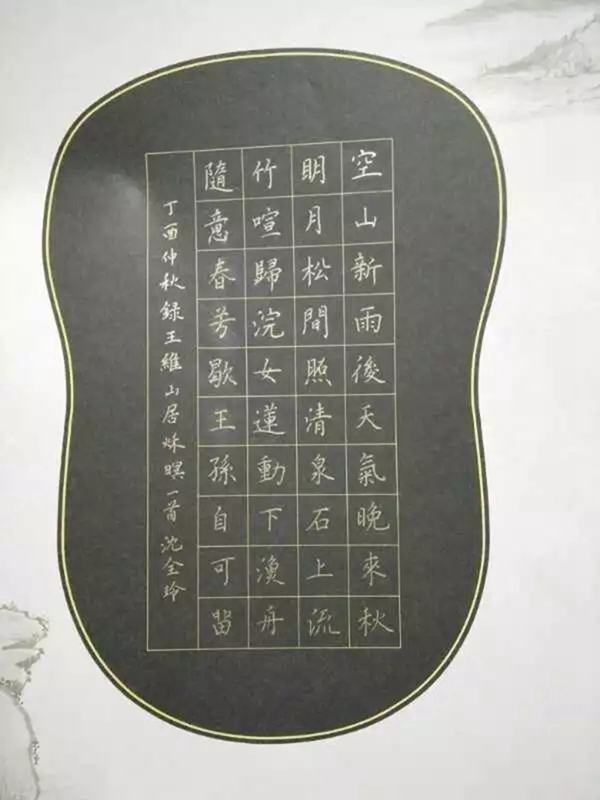 空山新雨後天氣晚來秋
明月松間照清泉石上流
竹喧歸浣女蓮動下漁舟
隨意春芳歇王孫自可留
丁酉仲秋録王維山居秌暝一首沈全玲